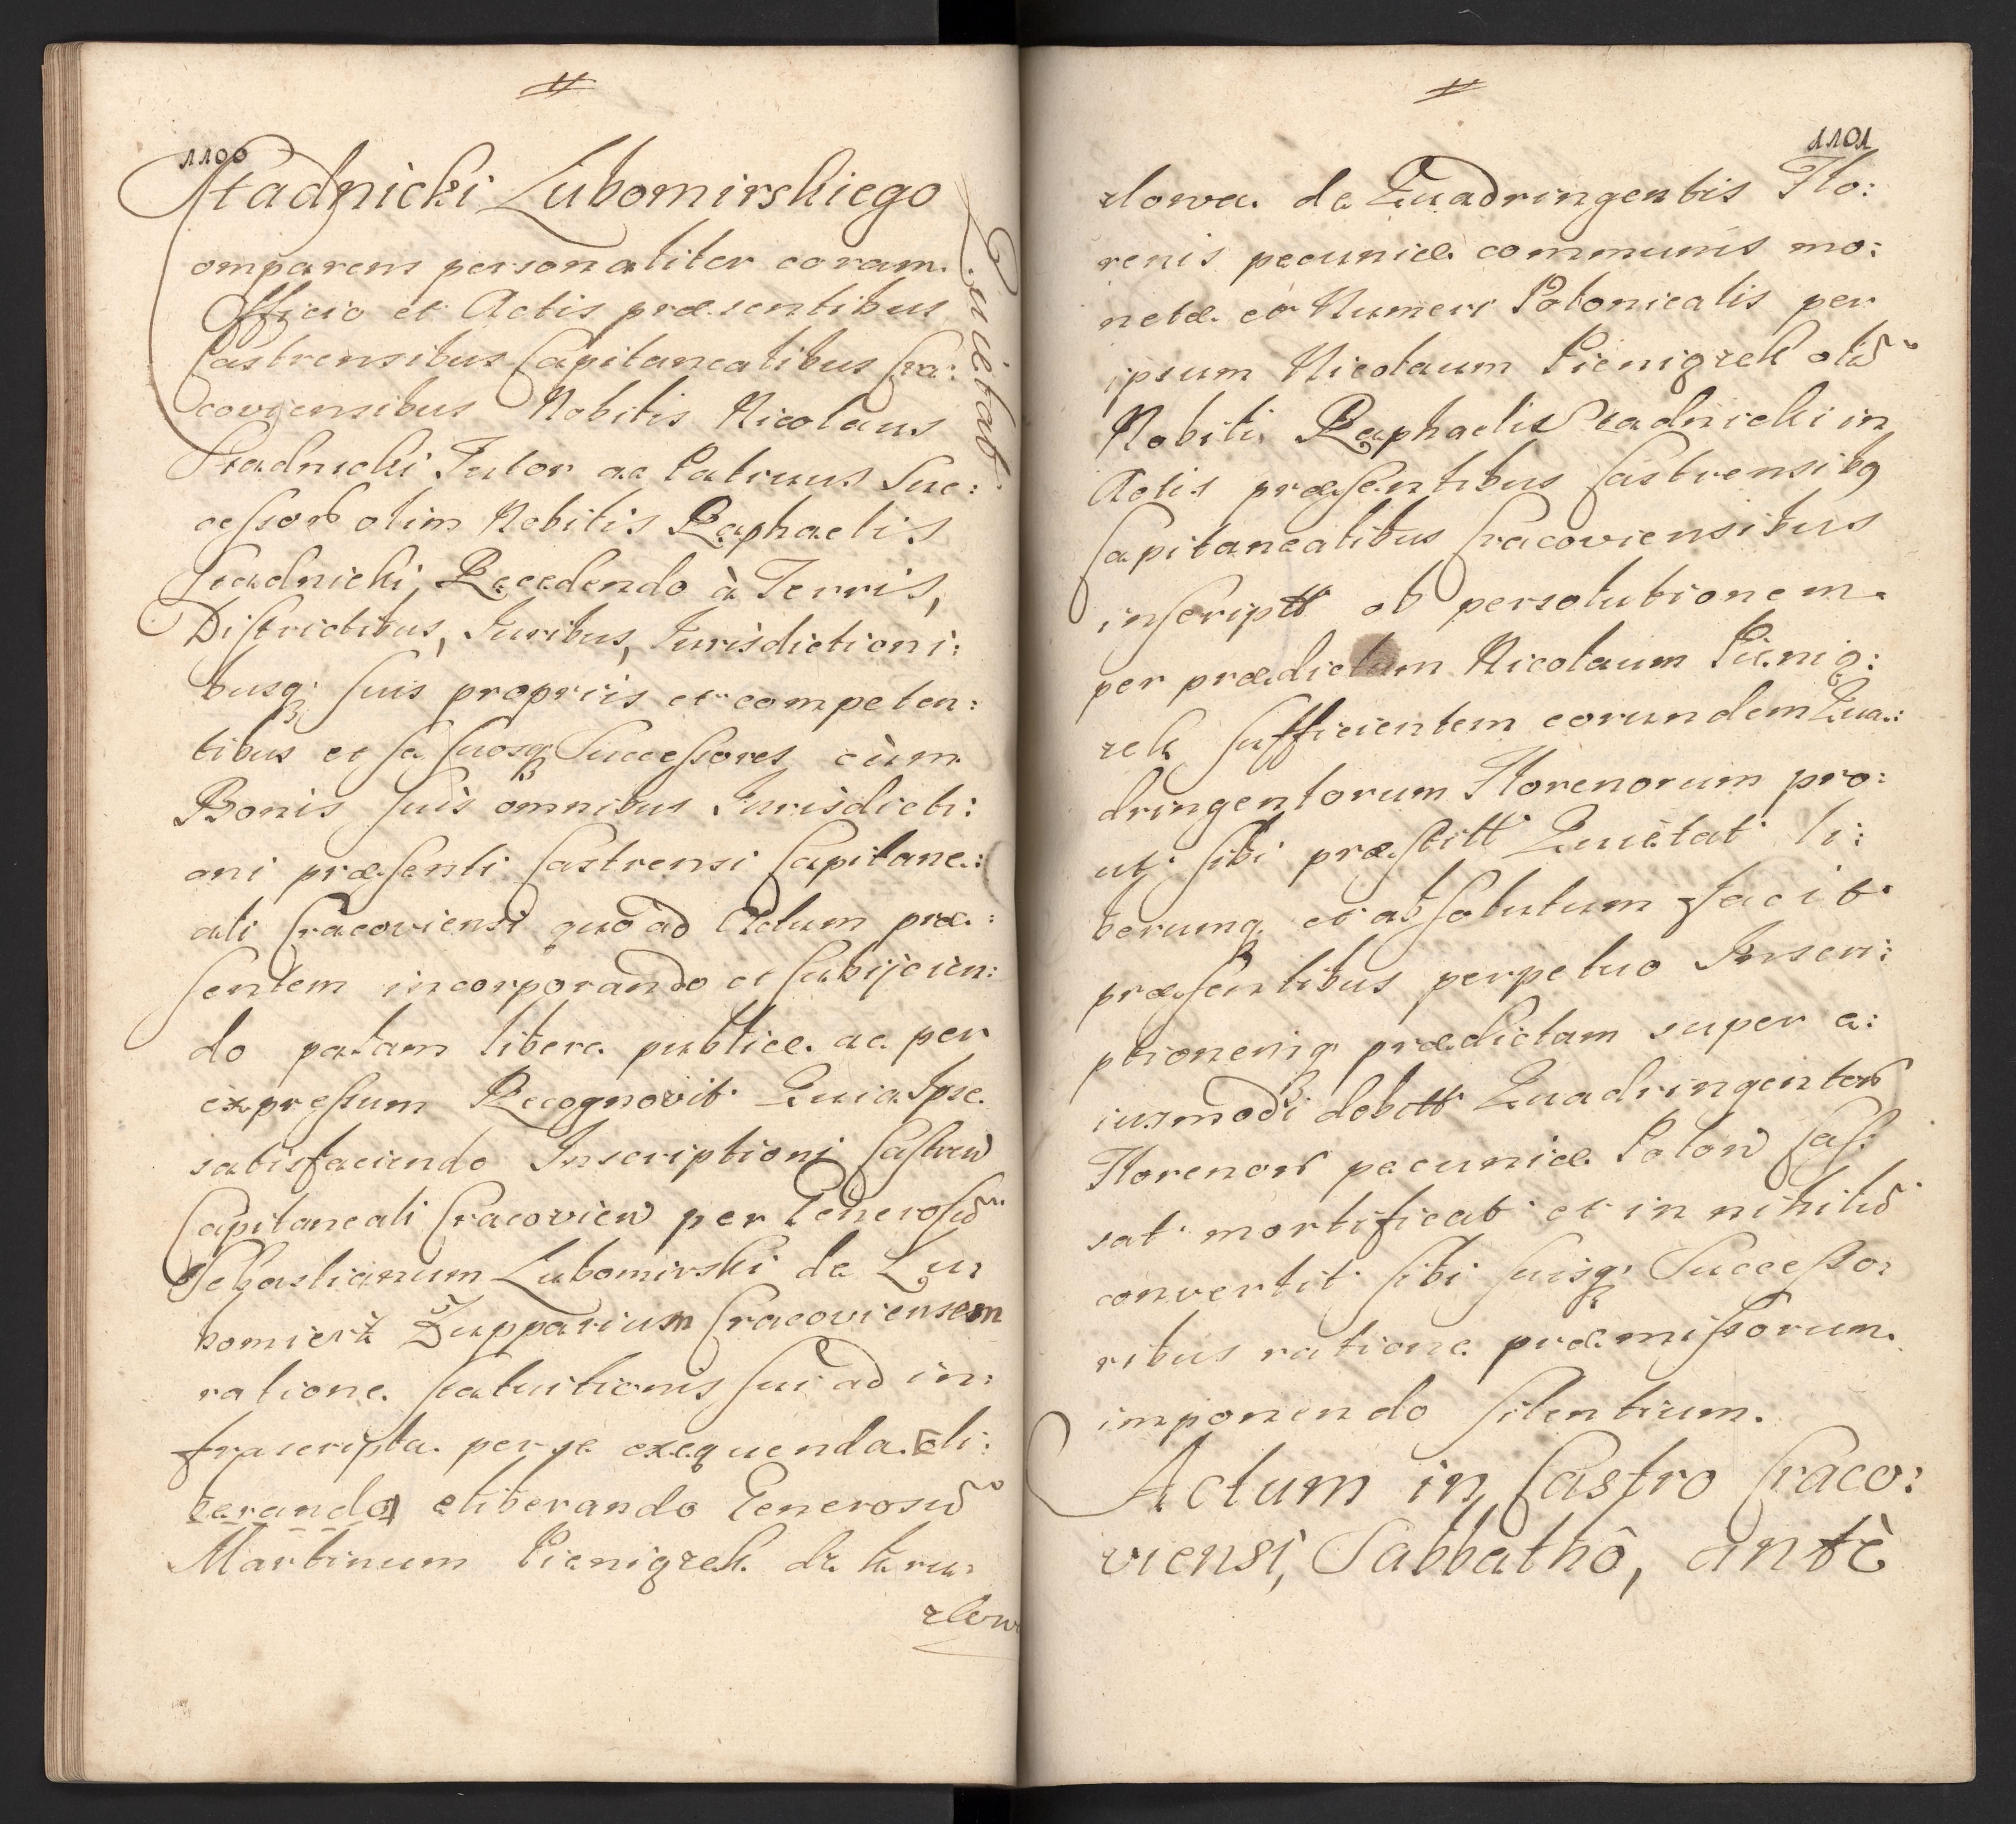 1100
Stadnicki Lubomirskiego
Quietat
omparens personaliter coram
Officio et Actis præsentibus
Castrensibus Capitanealibus Cra:
coviensibus Nobilis Nicolaus
Stadnicki Tutor ac Patruus Suc:
cessor olim Nobilis Raphaelis
Stadnicki, Recedendo à Terris,
Districtibus, Juribus, Jurisdictioni:
busq suis propriis et competen:
tibus et se suosq Successores cùm
Bonis suis omnibus Jurisdicti:
oni præsenti Castrensi Capitane:
ali Cracoviensi quo ad Actum præ:
sentem incorporando et subijcien:
do palam libere publice ac per
expressum Recognovit Quia Ipse
satisfaciendo Inscriptioni Castren
Capitaneali Cracovien per Generosu
Sebastianum Lubomirski de Lu:
bomierz Zupparium Cracoviensem
ratione statuitionis sui ad in:
frascripta per se exequenda eli:
berando eliberando Generosu
Martinum Pieniązek de Kru:
zlow
1101
zlowa de Quadringentis Flo:
renis pecuniæ communis mo:
netæ et Numeri Polonicalis per
ipsum Nicolaum Pieniązek oli
Nobili Raphaelis Stadnicki in
Actis præsentibus Castrensibq
Capitanealibus Cracoviensibus
inscriptt ob persolutionem
per prædictum Nicolaum Pienią:
zek sufficientem eorundem Qua:
dringentorum Florenorum pro:
ut sibi præstitt Quietat li:
berumq et absolutum facit
præsentibus perpetuo Inscri:
ptionemq prædictam super e:
iusmodi debitt Quadringentor
Florenor pecuniæ Polon cas:
sat mortificat et in nihilu
convertit sibi suisq Successo:
ribus ratione præmissorum
imponendo silentium.
Actum in Castro Craco:
viensi, Sabbathô, antè